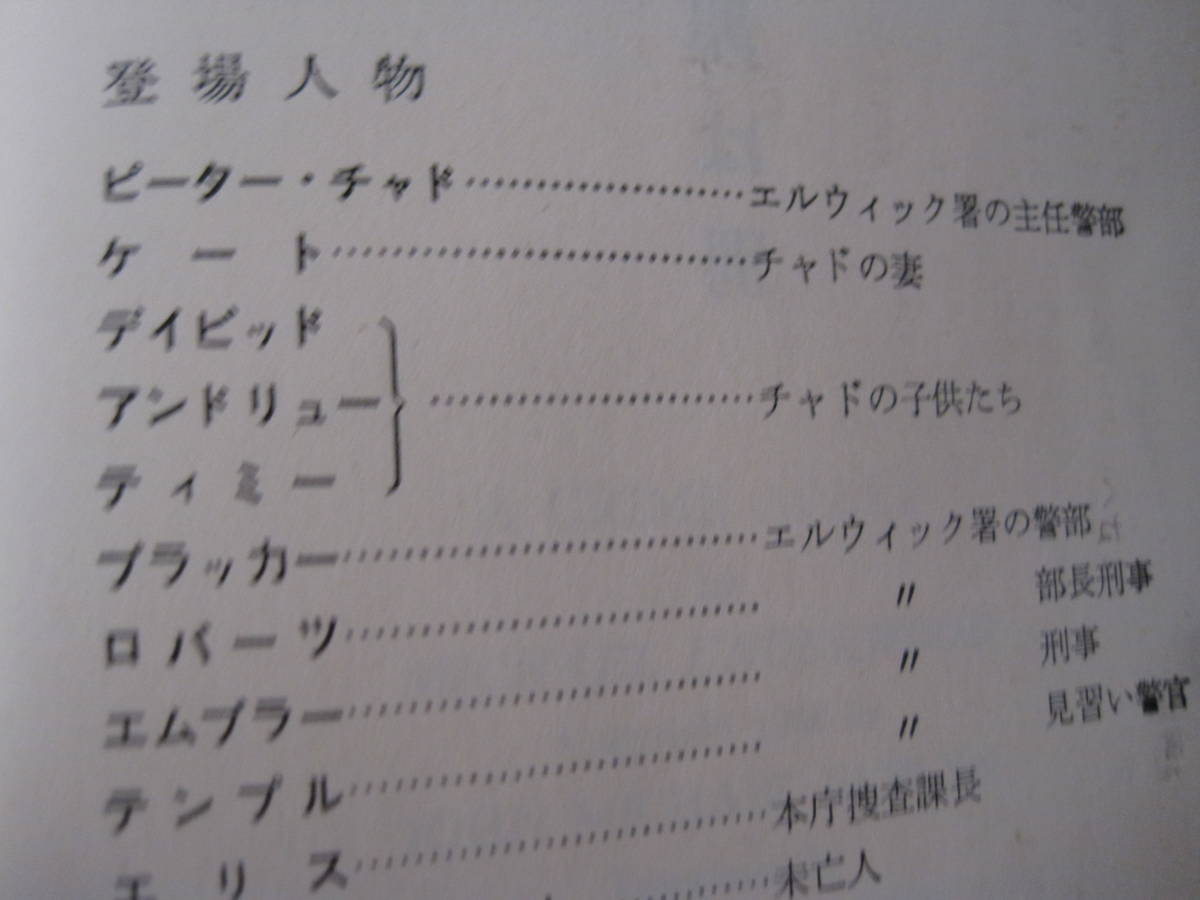 登場人物
ピーター・チャド……………………エルウィック署の主任警部
ケート……………………チャドの妻
デイビッド
アンドリュー……………………チャドの子供たち
ティミー
ブラッカー……………………エルウィック署の警部
ロバーツ…………………… 〃 部長刑事
エムブラー…………………… 〃 刑事
テンプル…………………… 〃 見習い警官
エリス……………………本庁捜査課長
……………………未亡人